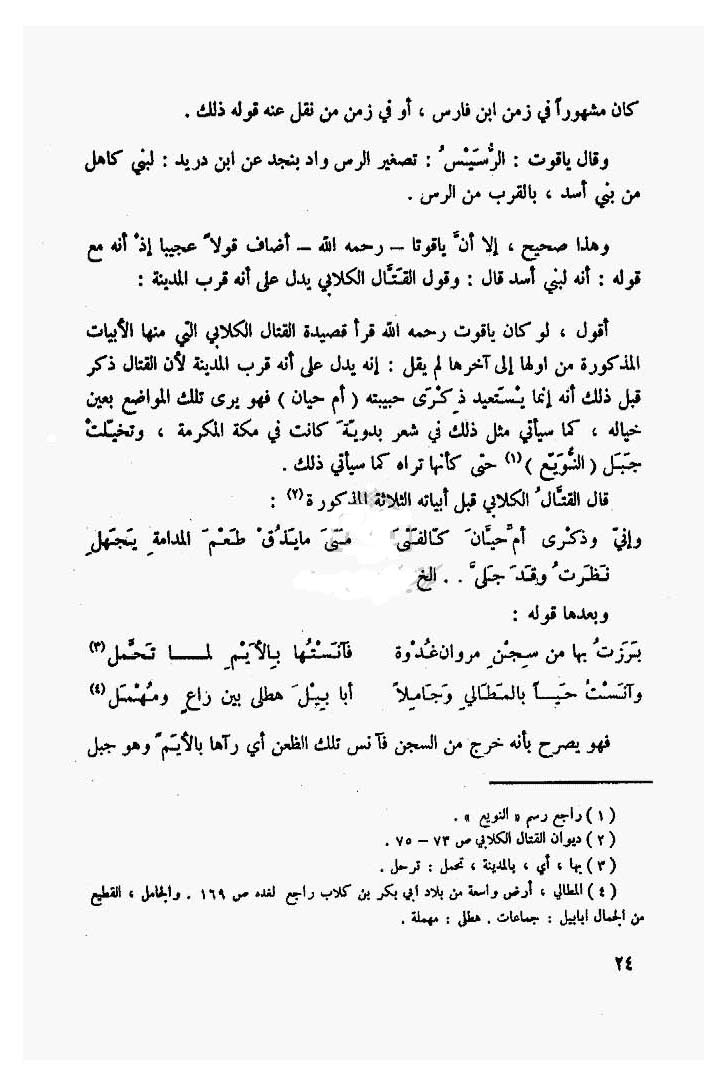 كان مشهوراً في زمن ابن فارس ، أو في زمن من نقل عنه قوله ذلك .
وقال ياقوت : الرُّسَيْسُ : تصغير الرس واد بنجد عن ابن دريد : لبني كاهل
من بني أسد ، بالقرب من الرس .
وهذا صحيح ، إلا أنَّ ياقوتا – رحمه الله – أضاف قولاً عجيبا إذْ أنه مع
قوله : أنه لبني أسد قال : وقول القتَّال الكلابي يدل على أنه قرب المدينة :
أقول ، لو كان ياقوت رحمه الله قرأ قصيدة القتال الكلابي التي منها الأبيات
المذكورة من اولها إلى آخرها لم يقل : إنه يدل على أنه قرب المدينة لأن القتال ذكر
قبل ذلك أنه إنما يسْتعيد ذكْرَى حبيبته ( أم حيان ) فهو يرى تلك المواضع بعين
خياله ، كما سيأتي مثل ذلك في شعر بدويّة كانت في مكة المكرمة ، وتخيلتْ
جَبَل ( النُّوَيَع )(١) حتى كأنها تراه كما سيأتي ذلك .
قال القتَّالُ الكلابي قبل أبياته الثلاثة المذكورة(٢) :
وإنيّ وذكْرى أم حيَّانَ كالفَتَى متَىَ مايَذُقْ طَعْمَ المدامةِ يَجْهلِ
نَظَرتُ وقَدَ جلىَّ . . الخ
وبعدها قوله :
بَرَزتُ بها من سِجْنِ مروان غُدْوة فآنَسْتُها بالأيْمِ لمـا تَحَمل(٣)
وآنَسْتُ حيَّاً بالمَطَالي وَجَامِلاً أبا بِيْلَ هطلى بين راعٍ ومُهْمَل(٤)
فهو يصرح بأنه خرج من السجن فآنس تلك الظعن أي رآها بالأيَمْ وهو جبل
( ١ ) راجع رسم « النويع » .
( ٢ ) ديوان القتال الكلابي ص ٧٣ – ٧٥ .
( ٣ ) بها ، أي ، بالمدينة ، تحمل : ترحل .
( ٤ ) المطالي ، أرض واسعة من بلاد ابي بكر بن كلاب راجع لغده ص ١٦٩ . والجامل ، القطيع
من الجمال ابابيل : جماعات . هطلى : مهملة .
٢٤